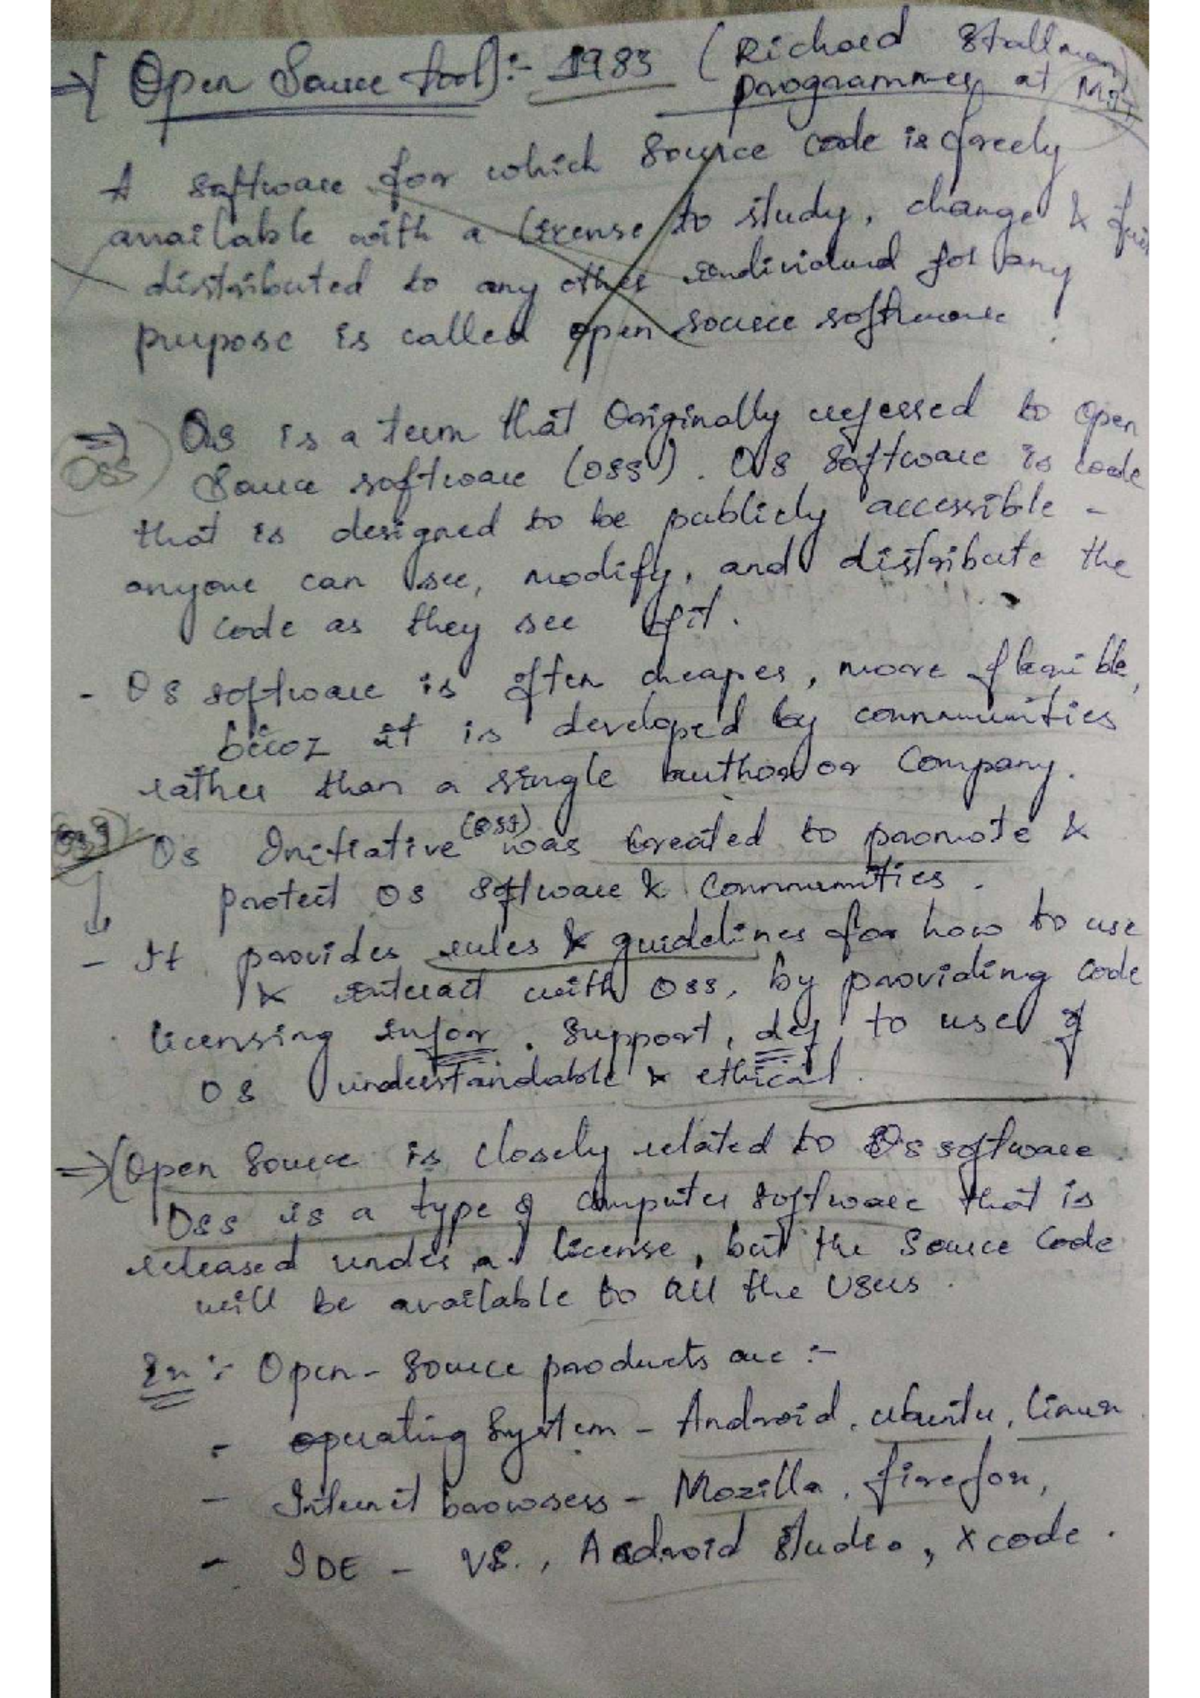 ⇒ Open Source tool :- 1983 (Richard Stallman)
programmer at MIT
A software for which source code is freely
available with a license to study, change &
distributed to any other individual for any
purpose is called open source software.
⇒ OS is a term that Originally referred to open
OSS
Source software (OSS). OS Software is code
that is designed to be publicly accessible -
anyone can see, modify, and distribute the
code as they see fit.
- OS software is often cheaper, more flexible,
becoz it is developed by communities
rather than a single author or Company.
OS Initiative was created to promote &
protect OS software & Communities.
- It provides rules & guidelines for how to use
& interact with OSS, by providing code
licensing infor. Support, def to use of
OS understandable & ethical.
⇒ (Open Source is closely related to OS software.
OSS is a type of computer software that is
released under a license, but the Source Code
will be available to all the users.
Ex :- Open-Source products are :-
- operating System - Android, ubuntu, linux
- Internet browsers - Mozilla, firefox,
- IDE - VS., Android studio, X code.